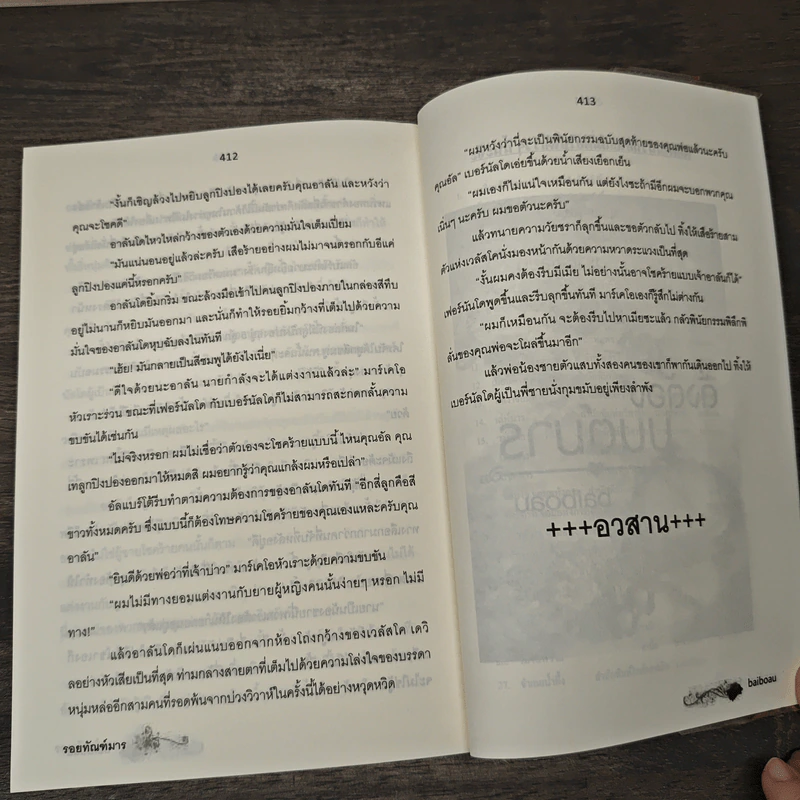 412
"งั้นก็เชิญล้วงไปหยิบลูกปิงปองได้เลยครับคุณอาลัน และหวังว่า
คุณจะโชคดี"
อาลันโดไหวไหล่กว้างของตัวเองด้วยความมั่นใจเต็มเปี่ยม
"มันแน่นอนอยู่แล้วล่ะครับ เสือร้ายอย่างผมไม่มาจนตรอกกับอีแค่
ลูกปิงปองแค่นี้หรอกครับ"
อาลันโดยิ้มกริ่ม ขณะล้วงมือเข้าไปคนลูกปิงปองภายในกล่องสีทึบ
อยู่ไม่นานก็หยิบมันออกมา และนั่นก็ทำให้รอยยิ้มกว้างที่เต็มไปด้วยความ
มั่นใจของอาลันโดหุบฉับลงในทันที
"เฮ้ย! มันกลายเป็นสีชมพูได้ยังไงเนี่ย"
"ดีใจด้วยนะอาลัน นายกำลังจะได้แต่งงานแล้วล่ะ" มาร์เคโอ
หัวเราะร่วน ขณะที่เฟอร์นัลโด กับเบอร์นัลโดก็ไม่สามารถสะกดกลั้นความ
ขบขันได้เช่นกัน
"ไม่จริงหรอก ผมไม่เชื่อว่าตัวเองจะโชคร้ายแบบนี้ ไหนคุณอัล คุณ
เทลูกปิงปองออกมาให้หมดสิ ผมอยากรู้ว่าคุณแกล้งผมหรือเปล่า"
อัลแบร์โต้รีบทำตามความต้องการของอาลันโดทันที "อีกสี่ลูกคือสี
ขาวทั้งหมดครับ ซึ่งแบบนี้ก็ต้องโทษความโชคร้ายของคุณเองแหละครับคุณ
อาลัน"
"ยินดีด้วยพ่อว่าที่เจ้าบ่าว" มาร์เคโอหัวเราะด้วยความขบขัน
"ผมไม่มีทางยอมแต่งงานกับยายผู้หญิงคนนั้นง่ายๆ หรอก ไม่มี
ทาง!"
แล้วอาลันโดก็เผ่นแนบออกจากห้องโถงกว้างของเวลัสโค เดวิ
ลอย่างหัวเสียเป็นที่สุด ท่ามกลางสายตาที่เต็มไปด้วยความโล่งใจของบรรดา
หนุ่มหล่ออีกสามคนที่รอดพ้นจากบ่วงวิวาห์ในครั้งนี้ได้อย่างหวุดหวิด
รอยทัณฑ์มาร
413
"ผมหวังว่านี่จะเป็นพินัยกรรมฉบับสุดท้ายของคุณพ่อแล้วนะครับ
คุณอัล" เบอร์นัลโดเอ่ยขึ้นด้วยน้ำเสียงเยือกเย็น
"ผมเองก็ไม่แน่ใจเหมือนกัน แต่ยังไงซะถ้ามีอีกผมจะบอกพวกคุณ
เนิ่นๆ นะครับ ผมขอตัวนะครับ"
แล้วทนายความวัยชราก็ลุกขึ้นและขอตัวกลับไป ทิ้งให้เสือร้ายสาม
ตัวแห่งเวลัสโคนั่งมองหน้ากันด้วยความหวาดระแวงเป็นที่สุด
"งั้นผมคงต้องรีบมีเมีย ไม่อย่างนั้นอาจโชคร้ายแบบเจ้าอาลันก็ได้"
เฟอร์นัลโดพูดขึ้นและรีบลุกขึ้นทันที มาร์เคโอเองก็รู้สึกไม่ต่างกัน
"ผมก็เหมือนกัน จะต้องรีบไปหาเมียซะแล้ว กลัวพินัยกรรมพิลึกพิ
ลั่นของคุณพ่อจะโผล่ขึ้นมาอีก"
แล้วพ่อน้องชายตัวแสบทั้งสองคนของเขาก็พากันเดินออกไป ทิ้งให้
เบอร์นัลโดผู้เป็นพี่ชายนั่งกุมขมับอยู่เพียงลำพัง
+++อวสาน+++
baiboau